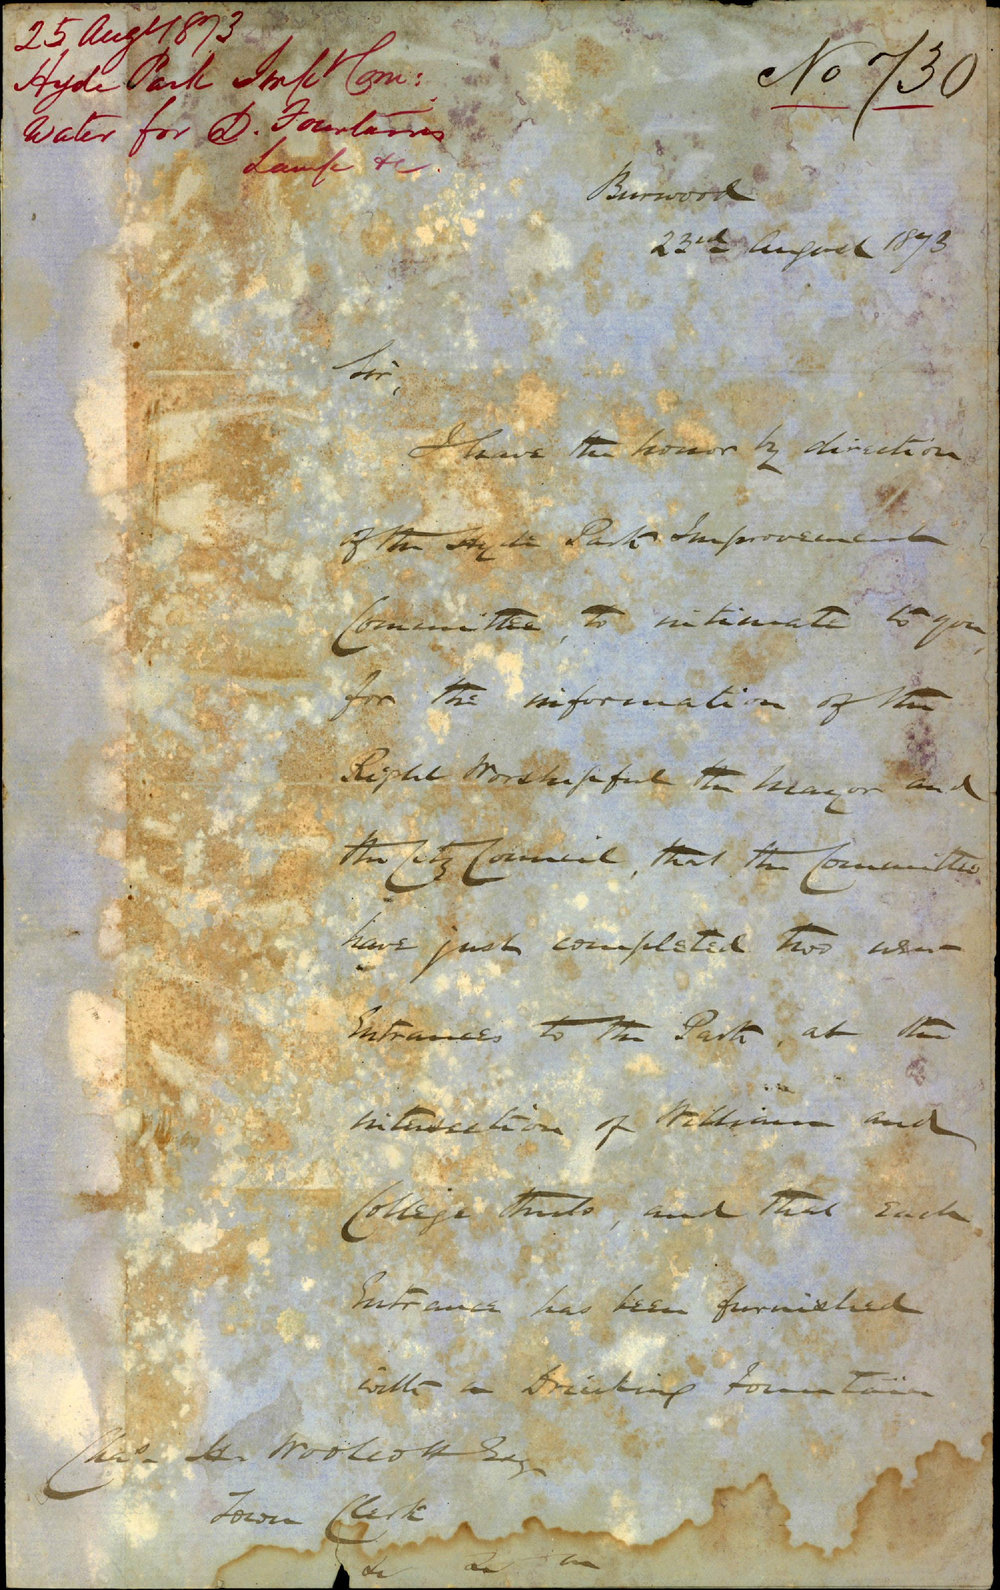 25 Augt 1873
Hyde Park Impt Com:
Water for D. Fountains
Lamps &c.
No 730
Burwood
23rd August 1873
Sir,
I have the honor by direction
of the Hyde Park Improvement
Committee, to intimate to you,
for the information of the
Right Worshipful the Mayor and
the City Council, that the Committee
have just completed two new
Entrances to the Park, at the
intersection of William and
College Streets, and that each
Entrance has been furnished
with a Drinking Fountain
Chas. H. Woolcott Esq
Town Clerk
&c &c &c